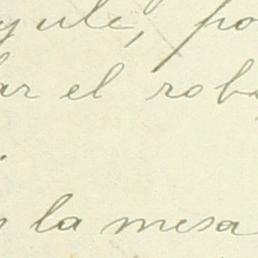 yule, po
ar el rob
n la mesa